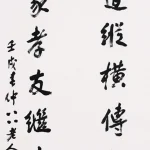 道縱橫傳
家孝友繼
壬戌春仲八八老